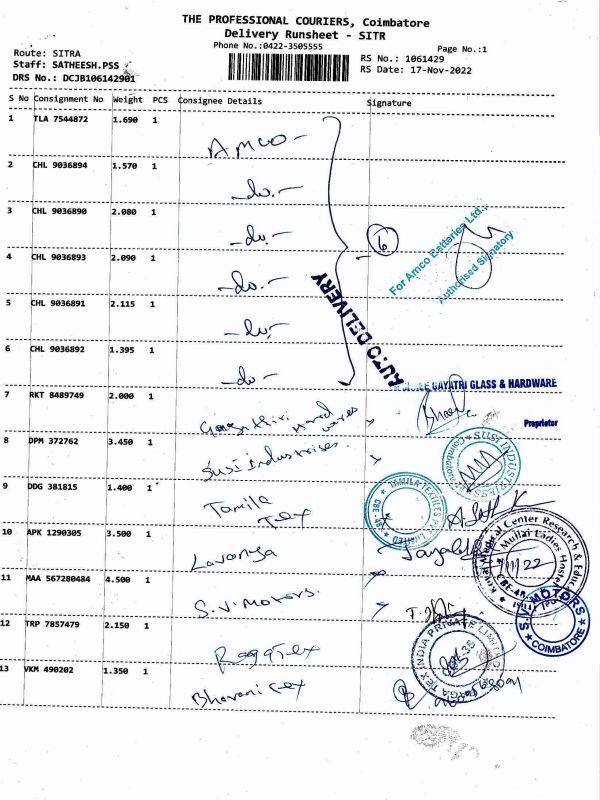 THE PROFESSIONAL COURIERS, Coimbatore
Delivery Runsheet - SITR
Phone No.:0422-3505555
Page No.:1
Route: SITRA
Staff: SATHEESH.PSS
DRS No.: DCJB106142901
RS No.: 1061429
RS Date: 17-Nov-2022
S No Consignment No Weight PCS Consignee Details Signature
1 TLA 7544872 1.690 1 AMCO -
2 CHL 9036894 1.570 1 - do. -
3 CHL 9036890 2.080 1 - do. -
6
4 CHL 9036893 2.090 1 - do. -
For Amco Batteries Ltd.,
Authorised Signatory
5 CHL 9036891 2.115 1 - do -
AUTO DELIVERY
6 CHL 9036892 1.395 1 - do -
GAYATRI GLASS & HARDWARE
Proprietor
7 RKT 8489749 2.000 1 Gayathiri Hard wares
8 DPM 372762 3.450 1 Susi Industrises.
SUSI INDUSTRIES
Coimbatore
9 DDG 381815 1.400 1 Tamila Tex
TAMILA TEXTILES PVT LIMITED
10 APK 1290305 3.500 1 Lavanya
Medical Center Research & Educ
Mullai Ladies Hostel
11/22
11 MAA 567280484 4.500 1 S.V. Motors.
S.V. MOTORS
COIMBATORE
12 TRP 7857479 2.150 1 RagaTex
RAGA TEX INDIA PRIVATE LIMITED
13 VKM 490202 1.350 1 Bhavani Tex